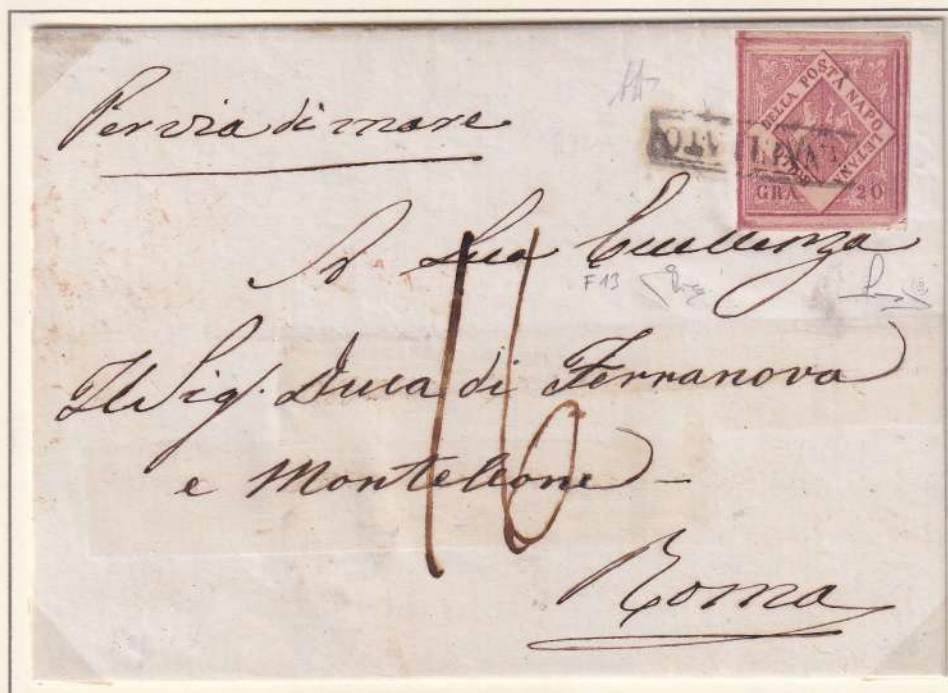 Per via di mare
BOLLA DELLA POSTA NAPOLETANA
GRA 20
ANNULLATO
A Sua Eccellenza
F 13
Il Sig. Duca di Terranova
e Monteleone
16
Roma